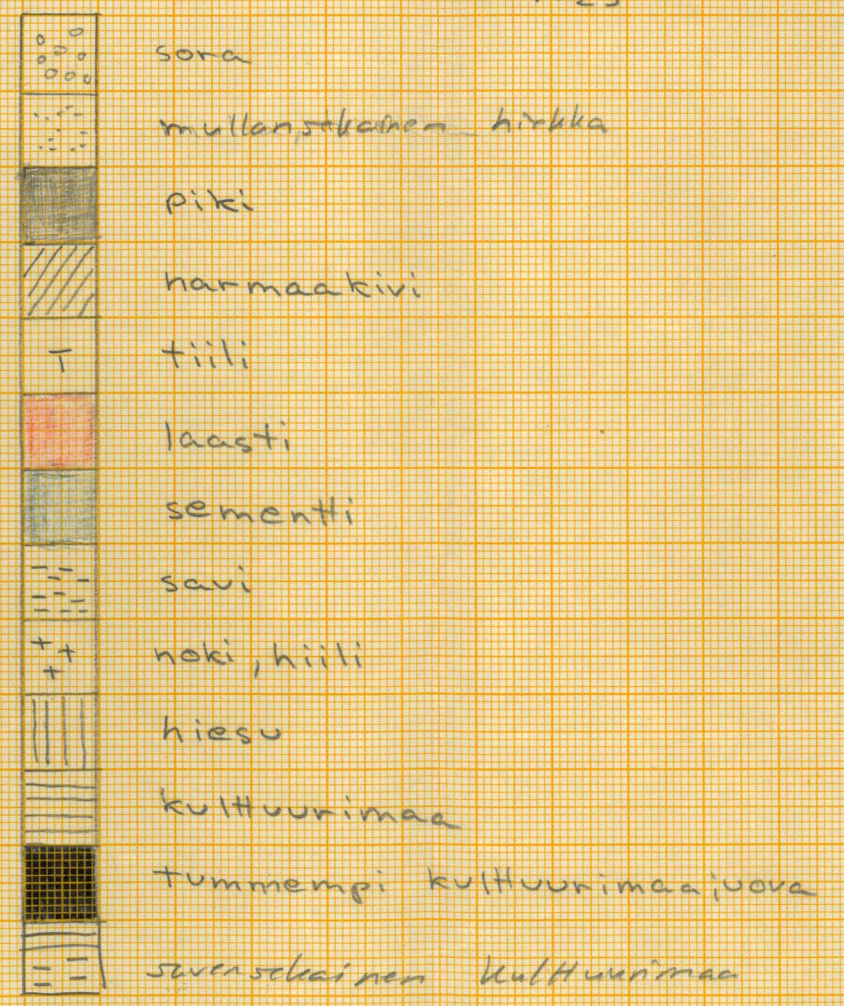 sora
mullansekainen hiekka
piki
harmaakivi
T tiili
laasti
sementti
savi
noki, hiili
hiesu
kulttuurimaa
tummempi kulttuurimaajuova
savensekainen kulttuurimaa